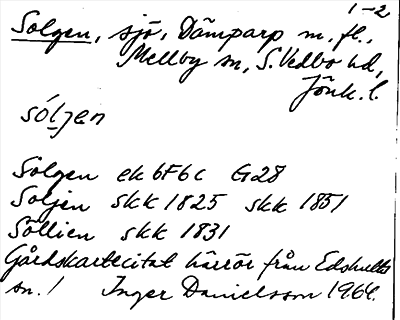 1-2
Solgen, sjö, Dämparp m.fl.,
Mellby sn, S.Vedbo hd,
Jönk.l.
sóljen
Solgen ek 6F6c G28
Soljen skk 1825 skk 1851
Söllien skk 1831
Gårdskartecitat härrör från Edshults
sn.! Inger Danielsson 1964.